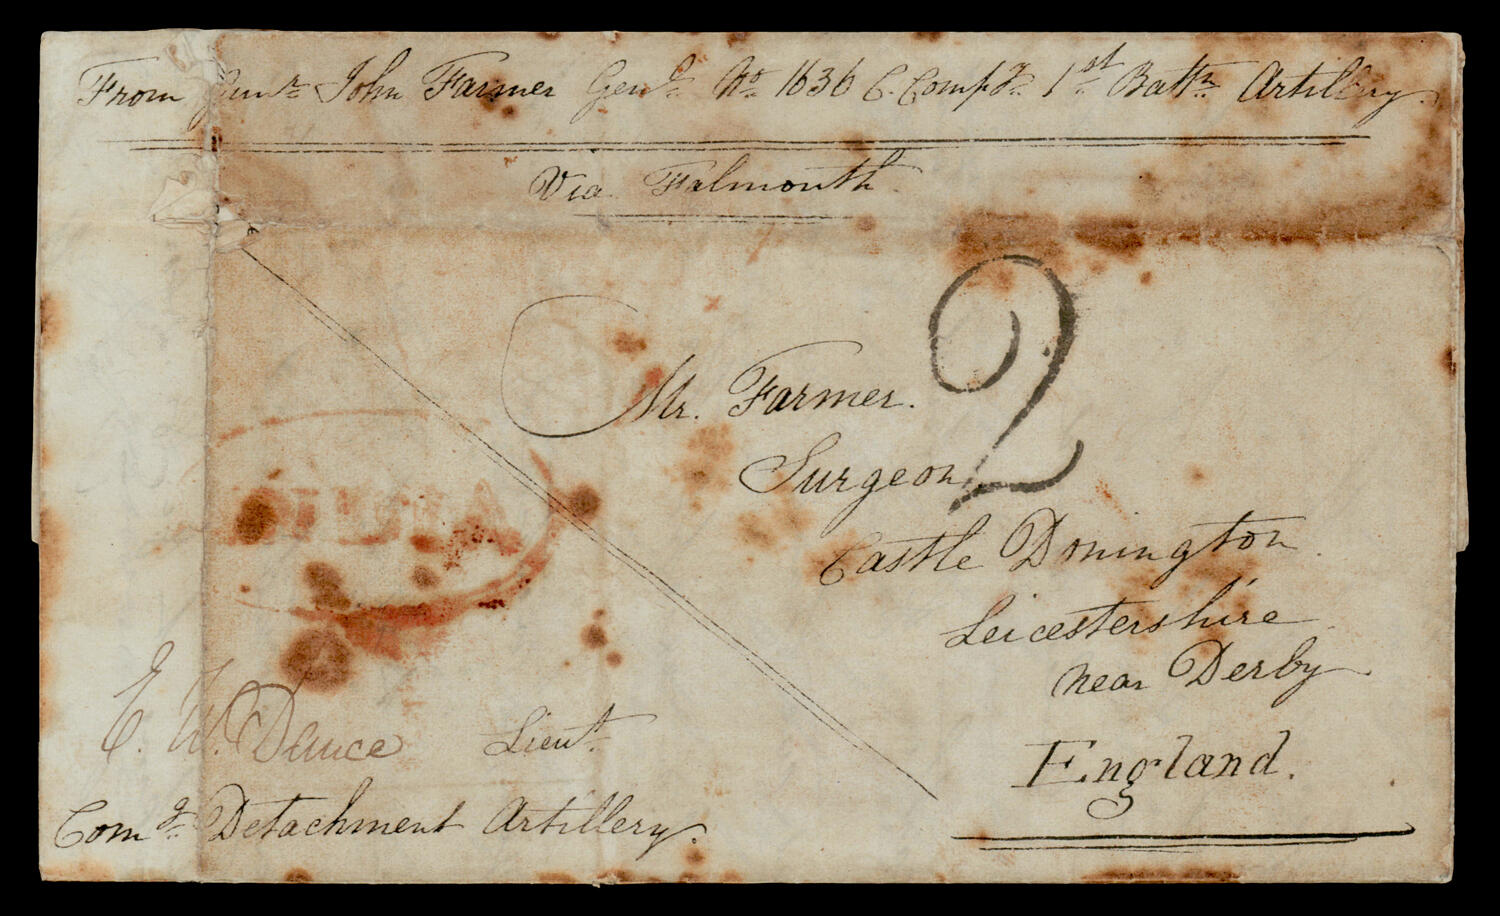 From Gunr. John Farmer Genl. No. 1636 C. Compy. 1st Battn. Artillery.
Via Falmouth
2
Mr. Farmer.
Surgeon
Castle Donington
Leicestershire
near Derby
England.
E. W. Dance Lieut.
Comdg. Detachment Artillery.